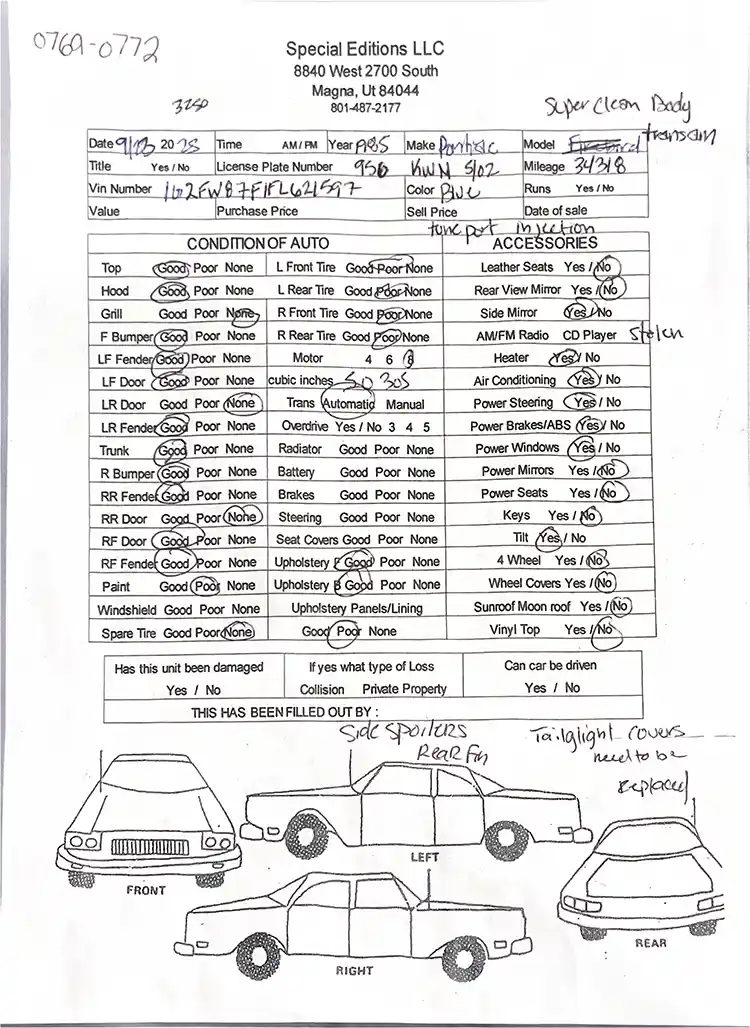 0769-0772
Special Editions LLC
8840 West 2700 South
Magna, Ut 84044
801-487-2177
3250
Super Clean Body
transam
Date 9/23 2025 Time AM / PM Year 1985 Make Pontiac Model Firebird
Title Yes / No License Plate Number 956 KWN 5/02 Mileage 34318
Vin Number 1G2FW87F1FL621597 Color Blue Runs Yes / No
Value Purchase Price Sell Price Date of sale
tune port injection
CONDITION OF AUTO ACCESSORIES
Top Good Poor None L Front Tire Good Poor None Leather Seats Yes / No
Hood Good Poor None L Rear Tire Good Poor None Rear View Mirror Yes / No
Grill Good Poor None R Front Tire Good Poor None Side Mirror Yes / No
F Bumper Good Poor None R Rear Tire Good Poor None AM/FM Radio CD Player Stolen
LF Fender Good Poor None Motor 4 6 8 Heater Yes / No
LF Door Good Poor None cubic inches 5.0 305 Air Conditioning Yes / No
LR Door Good Poor None Trans Automatic Manual Power Steering Yes / No
LR Fender Good Poor None Overdrive Yes / No 3 4 5 Power Brakes/ABS Yes / No
Trunk Good Poor None Radiator Good Poor None Power Windows Yes / No
R Bumper Good Poor None Battery Good Poor None Power Mirrors Yes / No
RR Fender Good Poor None Brakes Good Poor None Power Seats Yes / No
RR Door Good Poor None Steering Good Poor None Keys Yes / No
RF Door Good Poor None Seat Covers Good Poor None Tilt Yes / No
RF Fender Good Poor None Upholstery F Good Poor None 4 Wheel Yes / No
Paint Good Poor None Upholstery B Good Poor None Wheel Covers Yes / No
Windshield Good Poor None Upholstery Panels/Lining Sunroof Moon roof Yes / No
Spare Tire Good Poor None Good Poor None Vinyl Top Yes / No
Has this unit been damaged If yes what type of Loss Can car be driven
Yes / No Collision Private Property Yes / No
THIS HAS BEEN FILLED OUT BY :
Side Spoilers
Rear Fin
Tailglight covers
need to be
Replaced
FRONT
LEFT
RIGHT
REAR